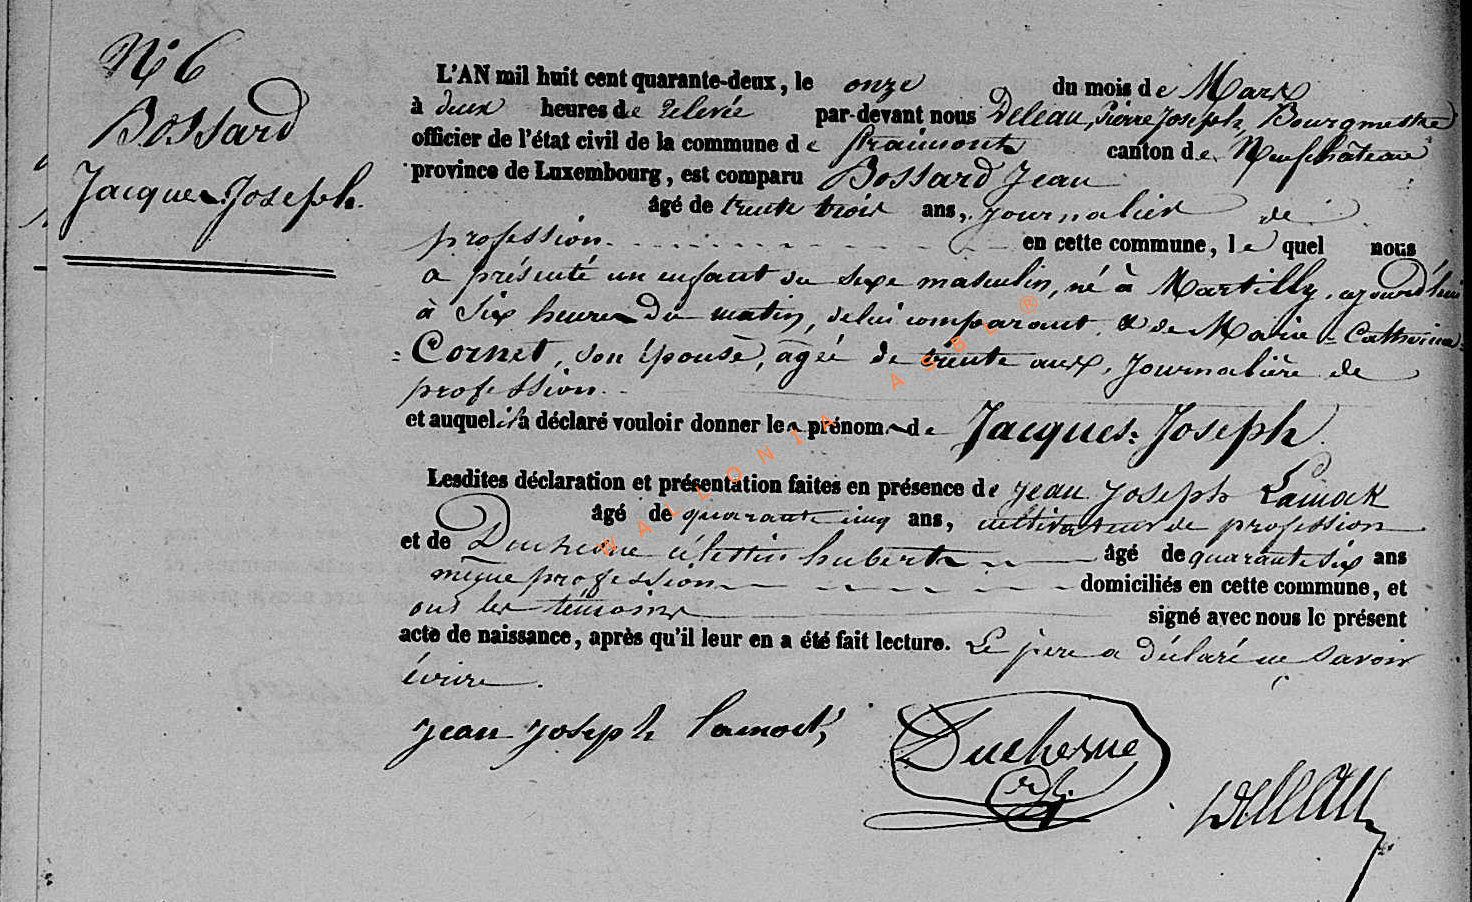 N° 6
Bossard
Jacques Joseph.
L'AN mil huit cent quarante-deux, le onze du mois de Mars
à deux heures de relevée par-devant nous Deleau, Pierre Joseph, Bourgmestre
officier de l'état civil de la commune de Straimont canton de Neufchâteau
province de Luxembourg, est comparu Bossard Jean
âgé de trente trois ans, journalier de
profession en cette commune, lequel nous
a présenté un enfant du sexe masculin, né à Martilly, aujourd'hui
à six heures du matin, de lui comparant & de Marie-Catherine
Cornet, son épouse, âgée de trente ans, journalière de
profession.
et auquel il a déclaré vouloir donner les prénoms de Jacques-Joseph.
Lesdites déclaration et présentation faites en présence de Jean Joseph Lamock
âgé de quarante cinq ans, cultivateur de profession
et de Duchesne célestin hubert âgé de quarante six ans
même profession domiciliés en cette commune, et
ont les témoins signé avec nous le présent
acte de naissance, après qu'il leur en a été fait lecture. Le père a déclaré ne savoir
écrire.
jean joseph lamock
Duchesne
Deleau
WALLONIA ASBL ®